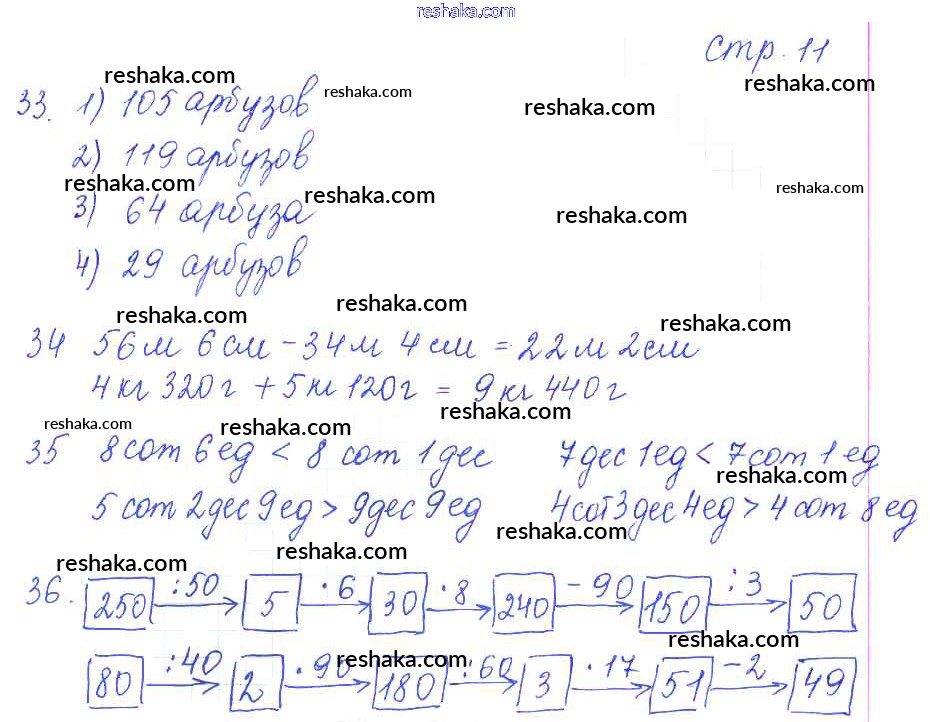 reshaka.com
стр. 11
reshaka.com reshaka.com reshaka.com reshaka.com
33. 1) 105 арбузов
2) 119 арбузов
reshaka.com reshaka.com reshaka.com reshaka.com
3) 64 арбуза
4) 29 арбузов
reshaka.com reshaka.com reshaka.com
34 56м 6см - 34м 4см = 22м 2см
4кг 320г + 5кг 120г = 9кг 440г
reshaka.com reshaka.com reshaka.com
35 8сот 6ед < 8 сот 1дес 7дес 1ед < 7сот 1ед
reshaka.com
5 сот 2дес 9ед > 9дес 9ед 4сот 3дес 4ед > 4 сот 8ед
reshaka.com reshaka.com reshaka.com
36. 250 :50 5 ·6 30 ·8 240 -90 150 :3 50
reshaka.com reshaka.com
80 :40 2 ·90 180 :60 3 ·17 51 -2 49